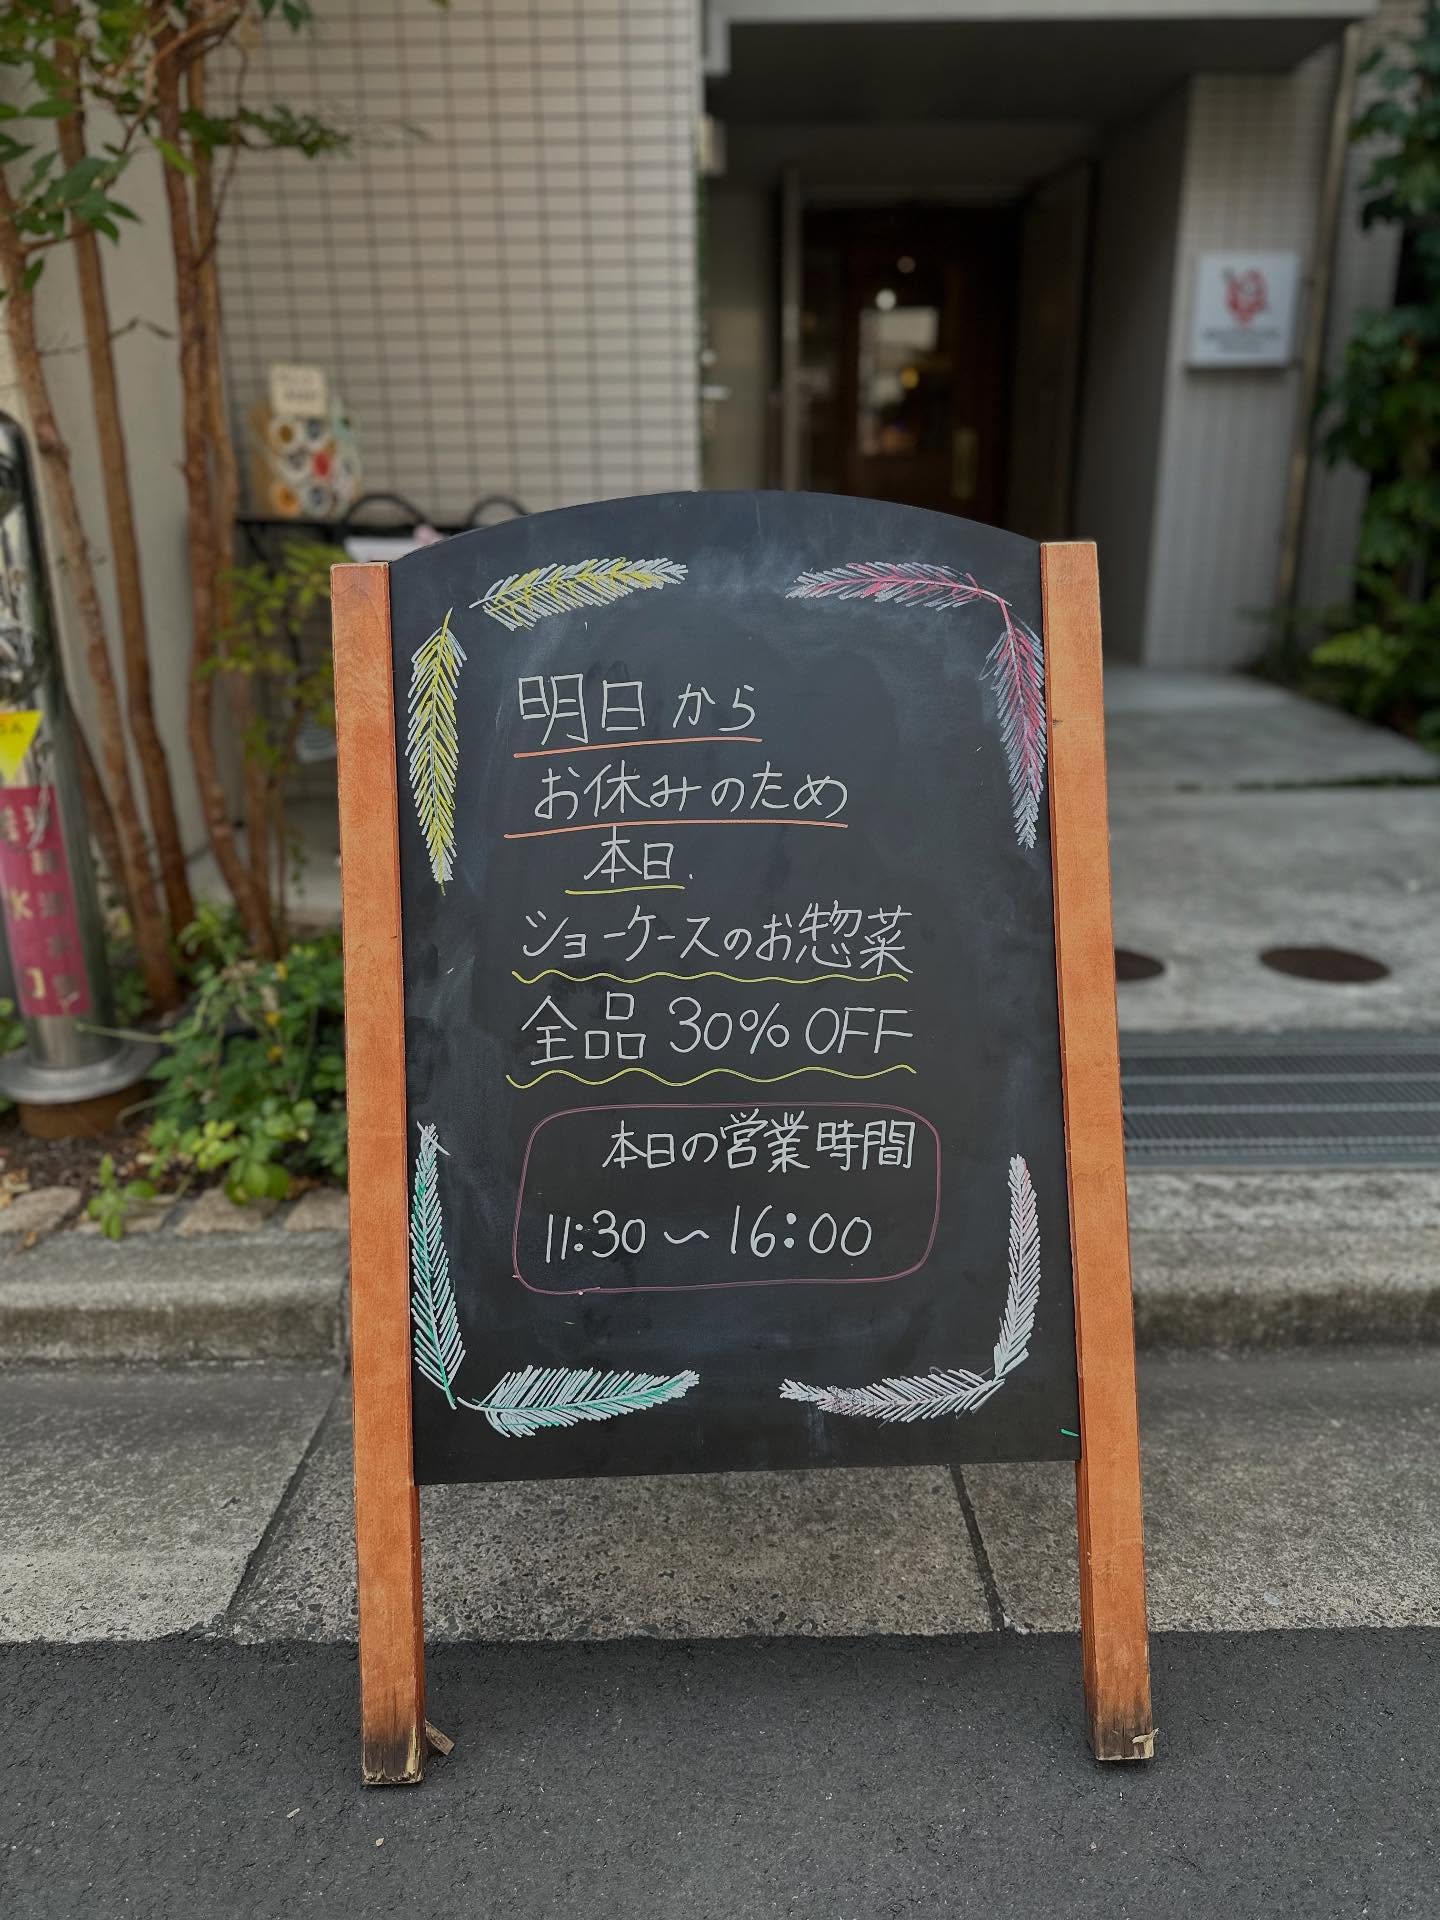 明日から
お休みのため
本日.
ショーケースのお惣菜
全品 30% OFF
本日の営業時間
11:30 〜 16:00